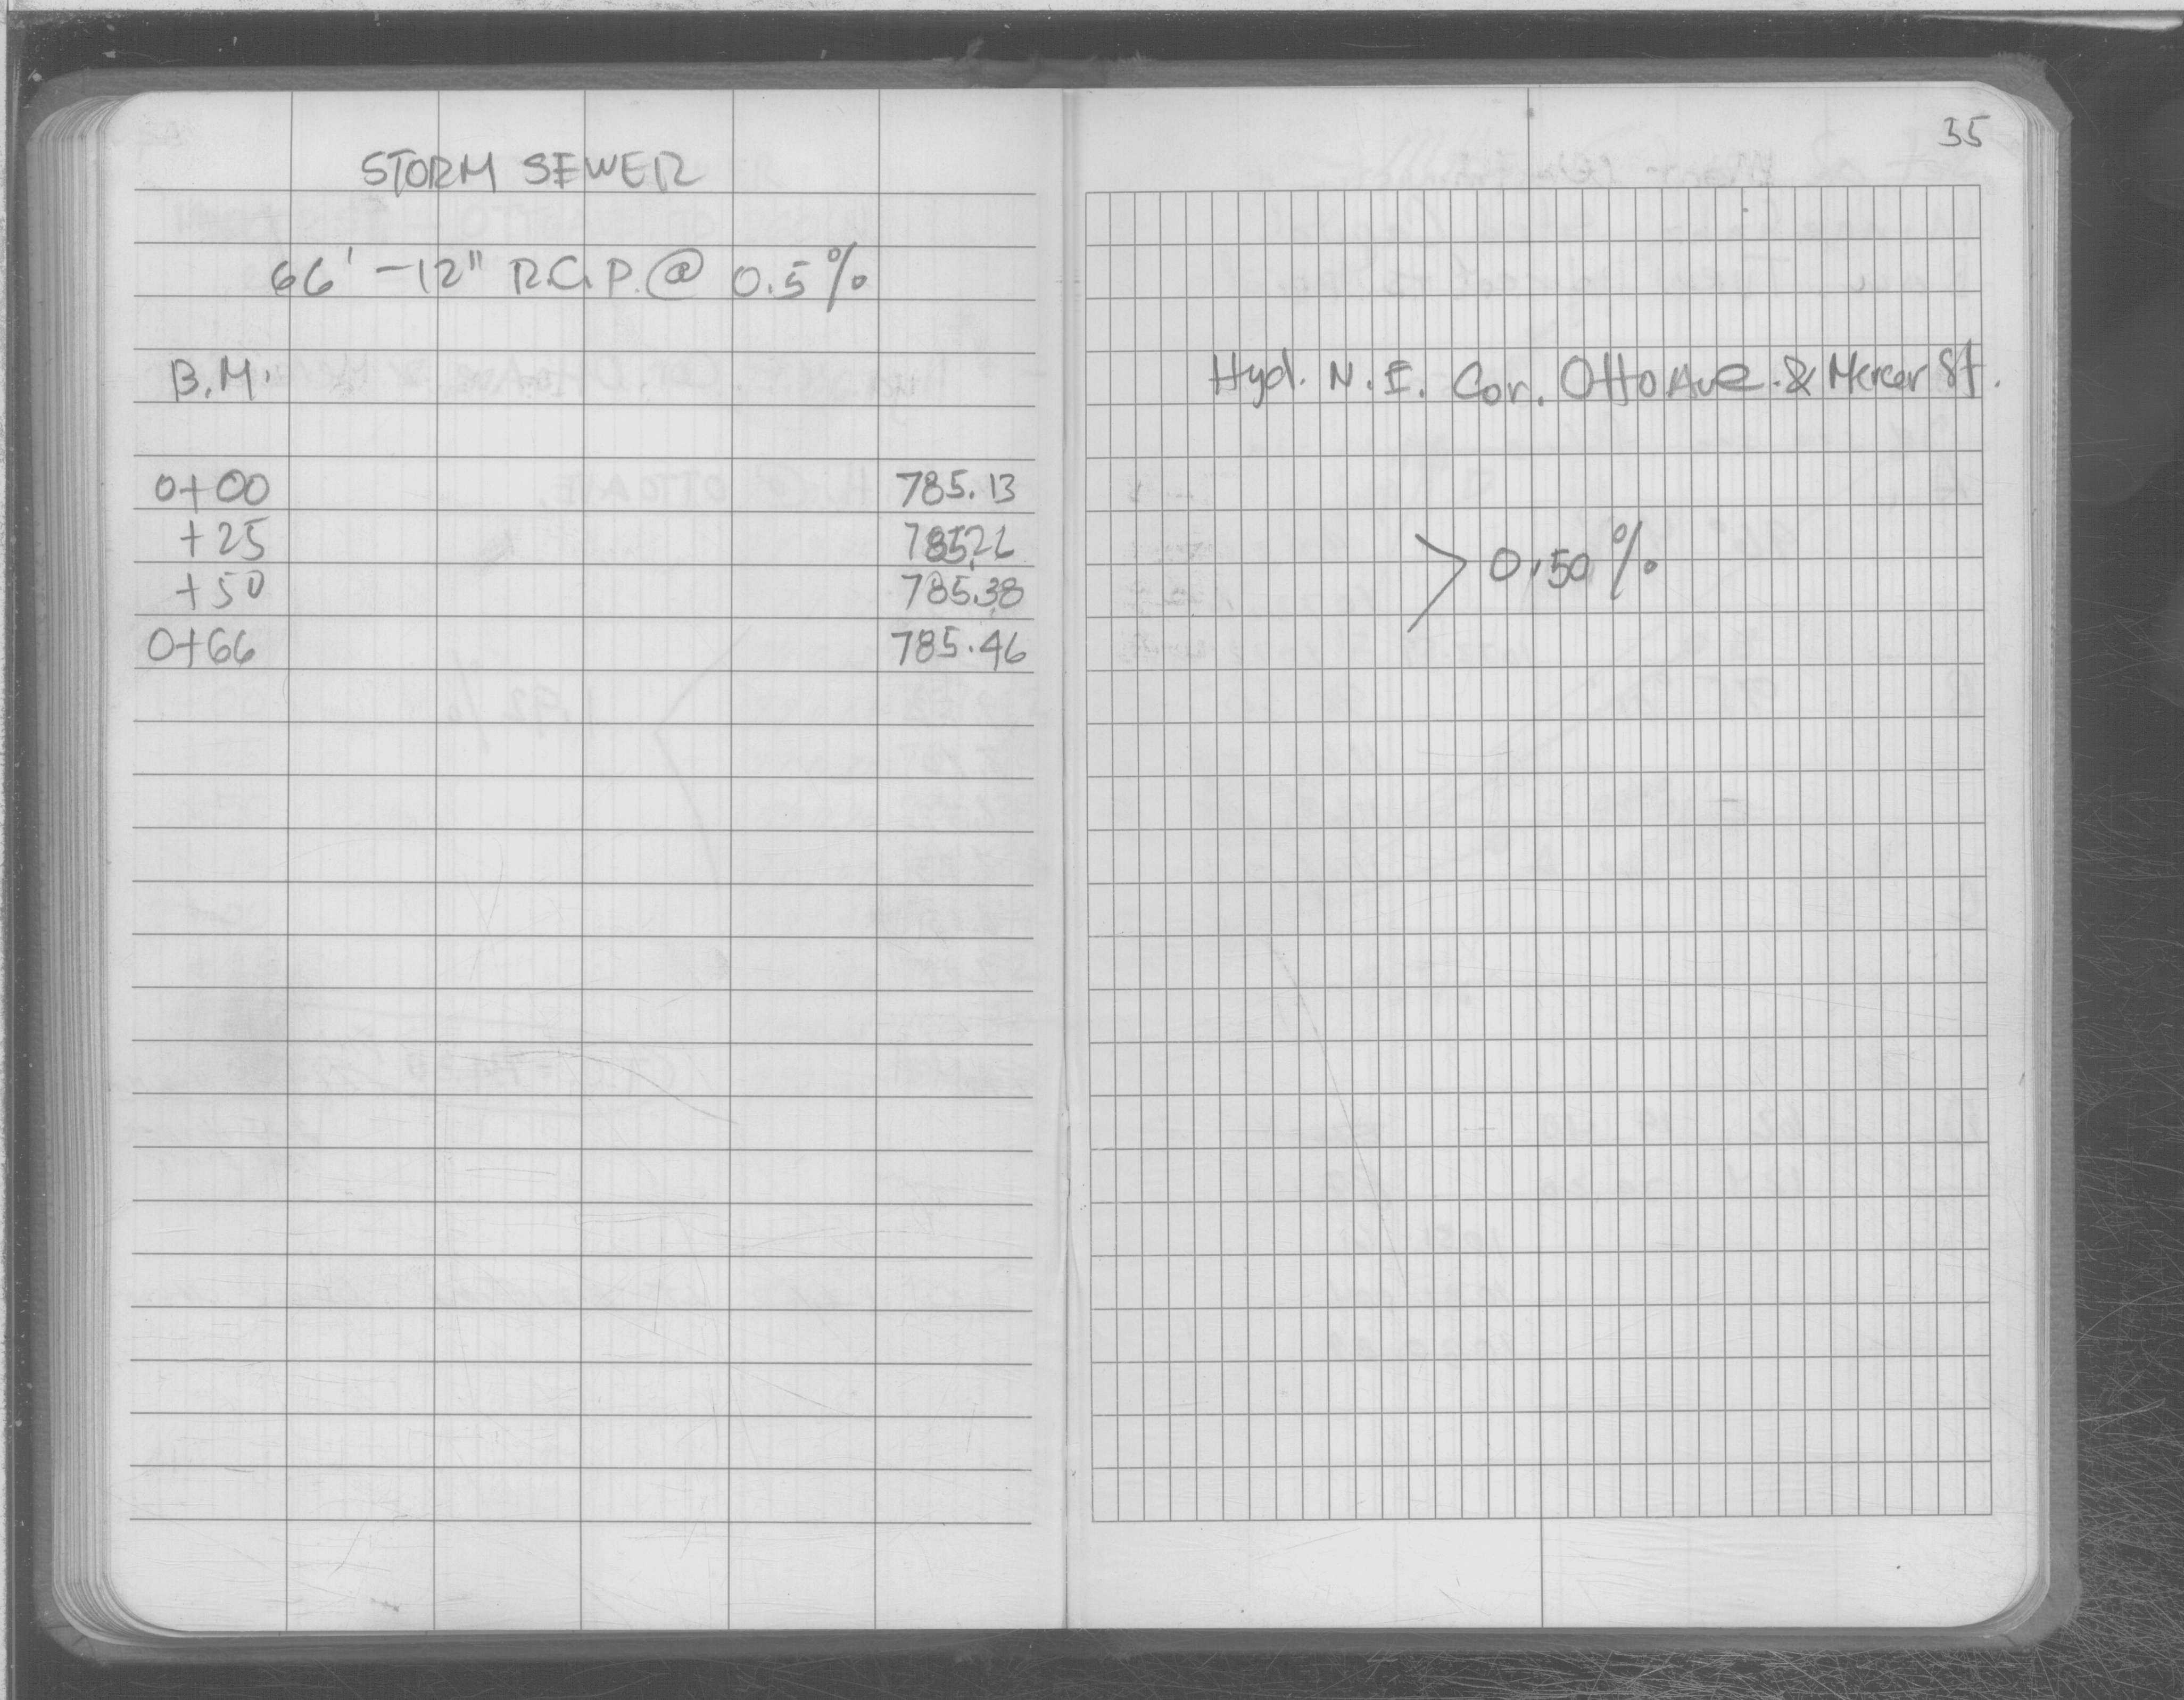 STORM SEWER
66' - 12" R.C.P. @ 0.5%
B.M.
0+00 785.13
+25 785.26
+50 785.38
0+66 785.46
35
Hyd. N.E. Cor. Otto Ave. & Mercer St.
> 0.50%